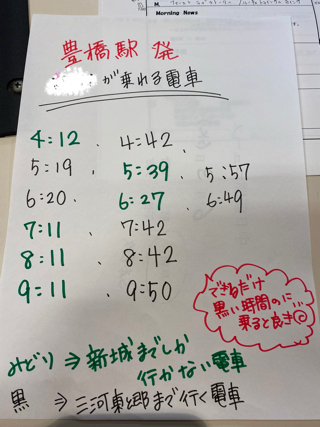 M.
Morning News
豊橋駅 発
が乗れる電車
4:12 、 4:42 、
5:19 、 5:39 、 5:57
6:20 、 6:27 、 6:49
7:11 、 7:42
8:11 、 8:42
9:11 、 9:50
できるだけ
黒い時間のに
乗ると良き
みどり ⇒ 新城までしか
行かない電車
黒 ⇒ 三河東郷まで行く電車